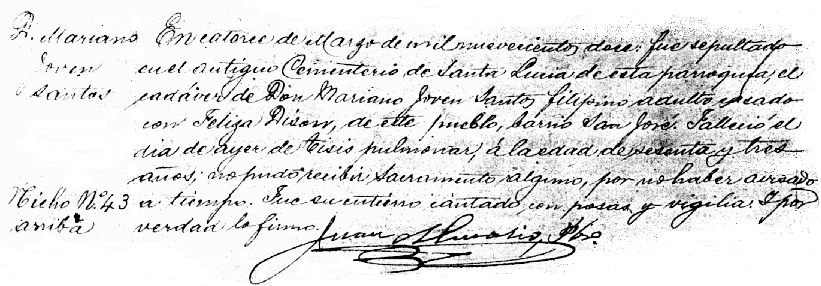 D. Mariano
Joven
Santos
Nicho N.º 43
arriba
En catorce de Marzo de mil nuevecientos doce: fue sepultado
en el antiguo Cementerio de Santa Lucia de esta parroquia, el
cadáver de Don Mariano Joven Santos, filipino adulto, casado
con Feliza Dison, de este pueblo, barrio San José. Falleció el
dia de ayer de tisis pulmonar, á la edad de sesenta y tres
años; no pudo recibir Sacramento alguno, por no haber avisado
a tiempo. Fue su entierro cantado con posas y vigilia. Y por
verdad lo firmo.
Juan Pbro.